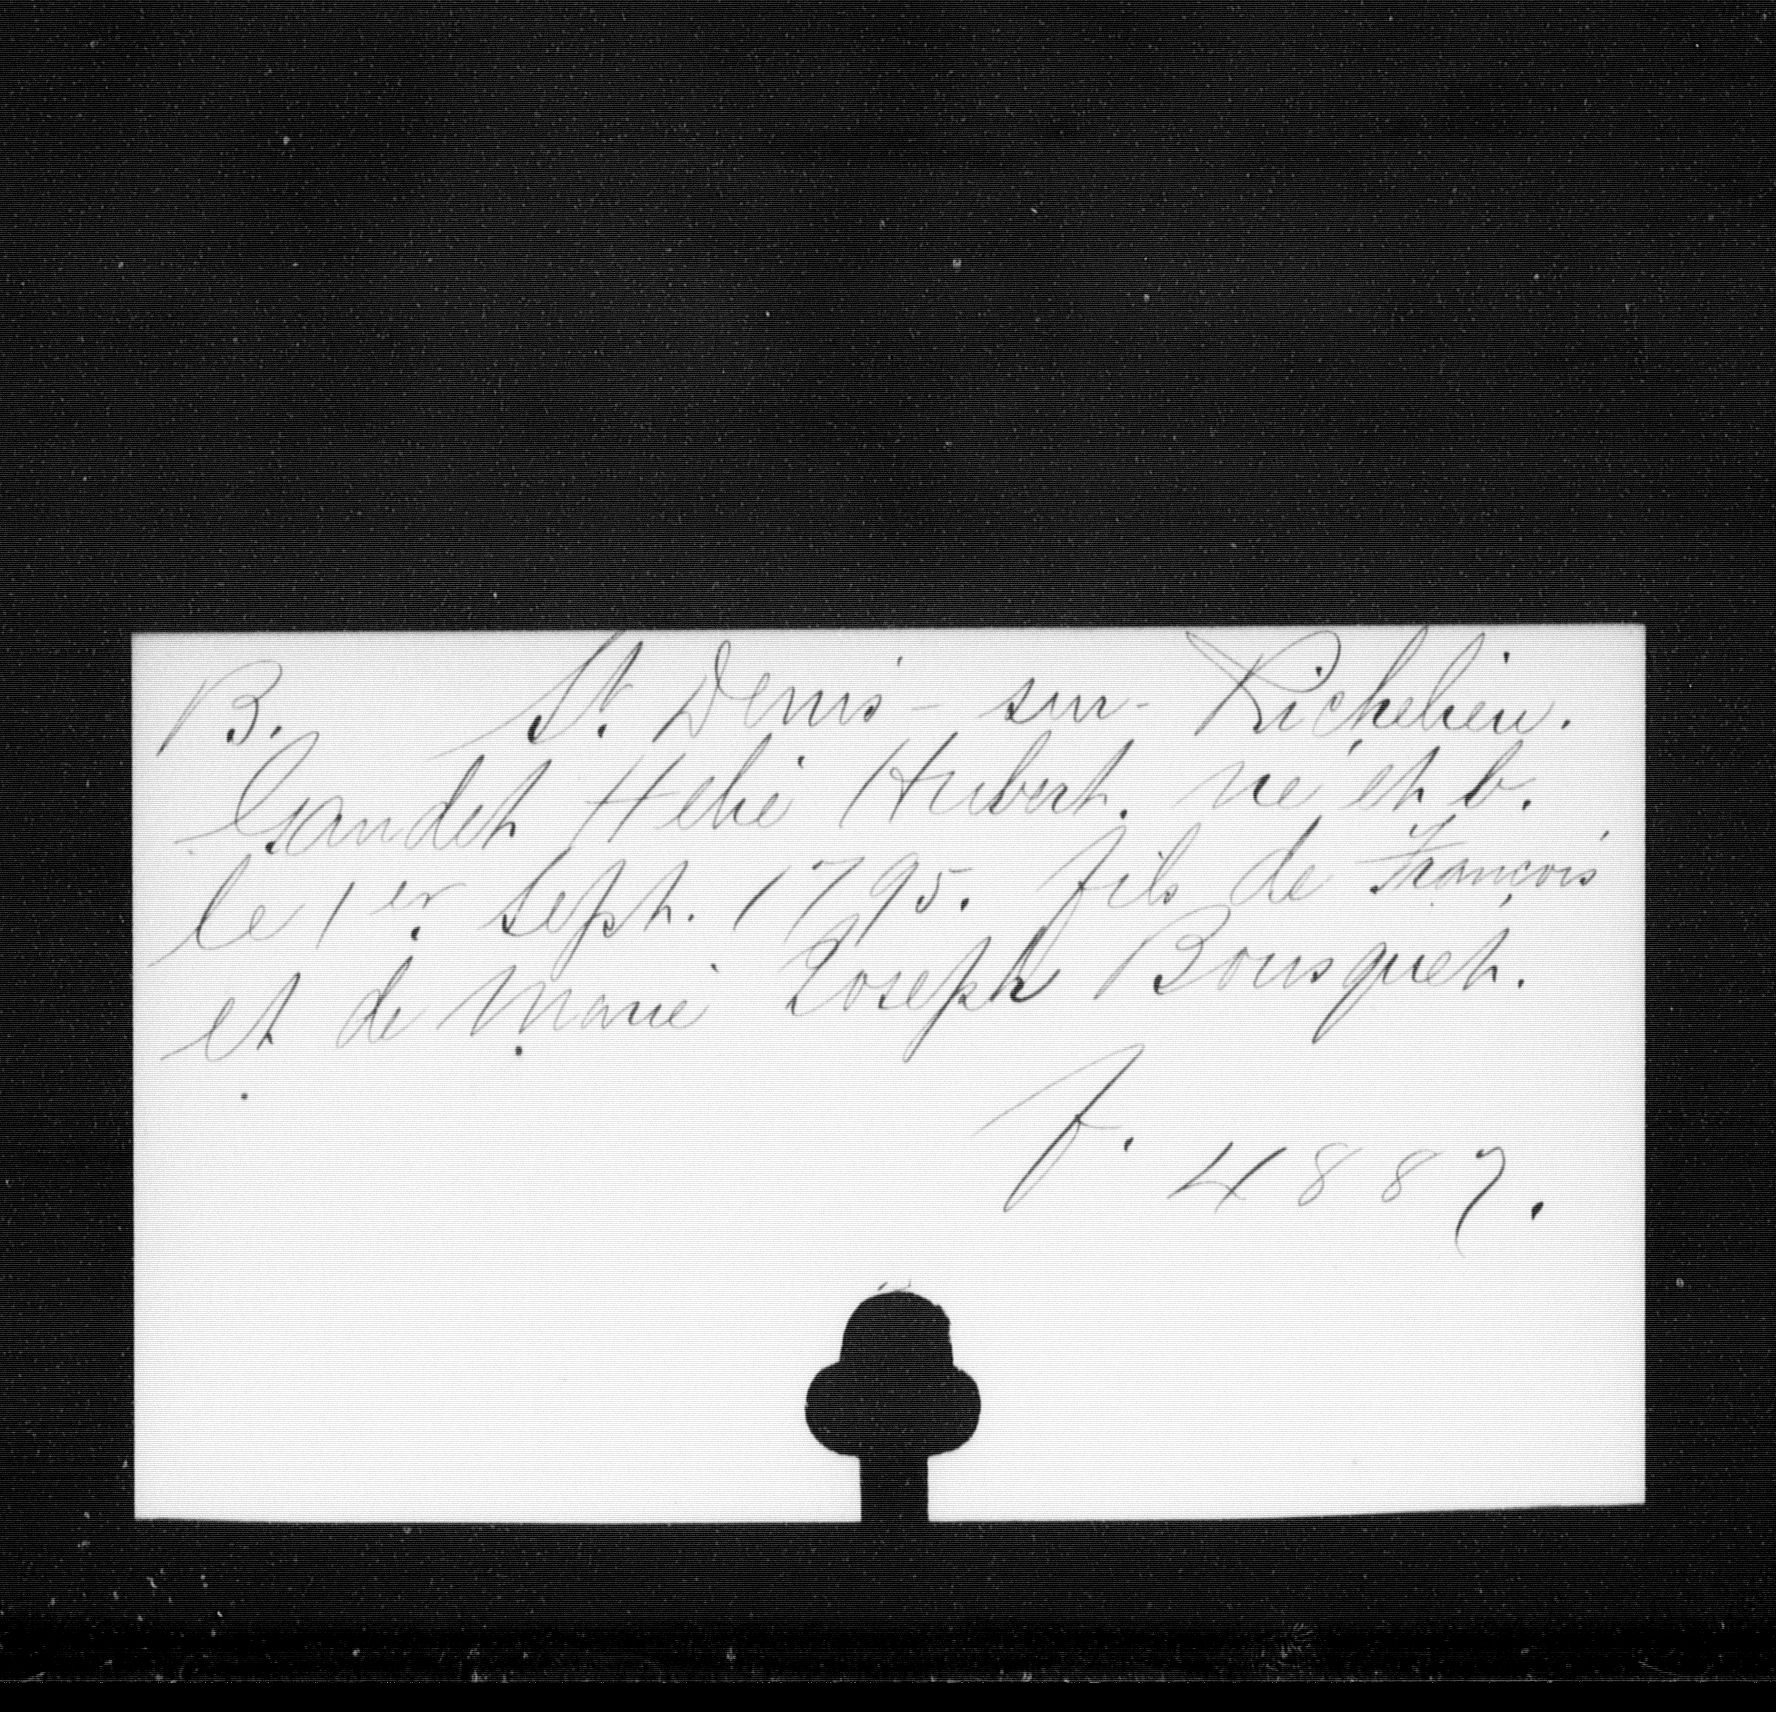 B. St. Denis-sur-Richelieu.
Gaudet Helie Hubert. né et b.
le 1er. Sept. 1795. fils de François
et de Marie Joseph Bousquet.
f. 4887.